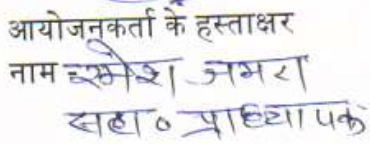 आयोजनकर्ता के हस्ताक्षर
नाम - रमेश जमरा
सहा० प्राध्यापक